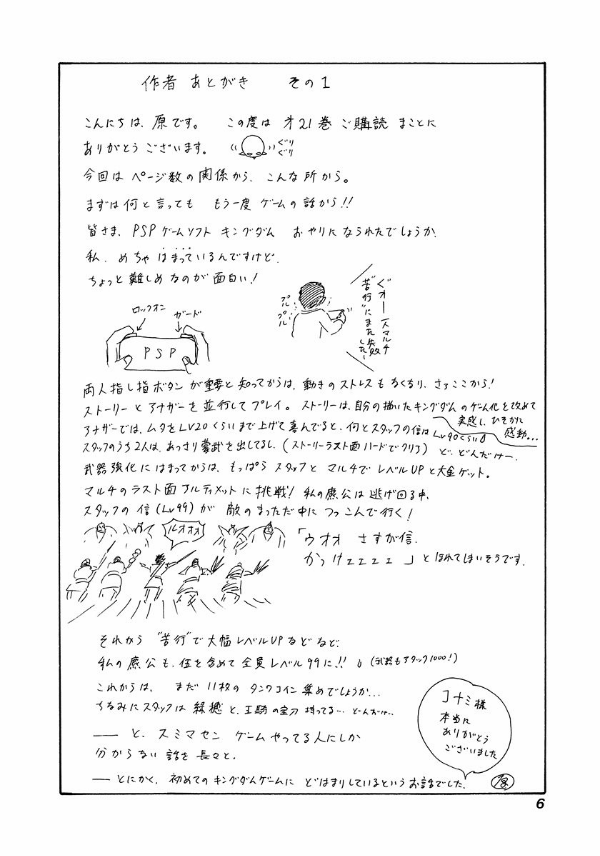 作者 あとがき その1
こんにちは、原です。 この度は 才21巻 ご購読 まことに
ありがとうございます。 ぐりぐり
今回は ページ数の関係から、こんな所から。
まずは何と言っても もう一度 ゲームの話から!!
皆さま、PSPゲームソフト キングダム おやりになられたでしょうか
私、めちゃ はまっているんですけど、
ちょっと難しめなのが面白い!
ロックオン
ガード
PSP
プルプル
"苦行"にまた失敗した
両人指し指ボタンが重要と知ってからは、動きのストレスもなくなり、さァここから!
ストーリーとアナザーを並行してプレイ。ストーリーは、自分の描いたキングダムのゲーム化を改めて
実感し、ひそかに感動…
アナザーでは、ムタをLV20くらいまで上げて喜んでると、何とスタッフの信はLv90くらい
スタッフのうち2人は、あっさり蒙武を出してるし、(ストーリーラスト面ハードでクリア) ど、どんだけー、
武器強化にはまってからは、もっぱら スタッフと マルチで レベルUPと大金ゲット。
マルチのラスト面アルティメットに挑戦! 私の麃公は逃げ回る中、
スタッフの信(Lv99)が 敵のまっただ中に つっこんで行く!
ルオオォ
「ウオオ さすが信、
かっけェェェェ」と ほれてしまいそうです。
それから "苦行"で大幅レベルUPなどなど、
私の麃公も、信を含めて全員レベル99に!! (武器もアタック1000!)
これからは、まだ 11枚の タンワコイン 集めでしょうか…
ちなみにスタッフは 縁穂と、王騎の宝刀 持ってる… どんだけ…
── と、スミマセン ゲームやってる人にしか
分からない 話を 長々と、
── とにかく、初めてのキングダムゲームに どはまりしているというお話でした。
コナミ様
本当に
ありがとう
ございました
原
6